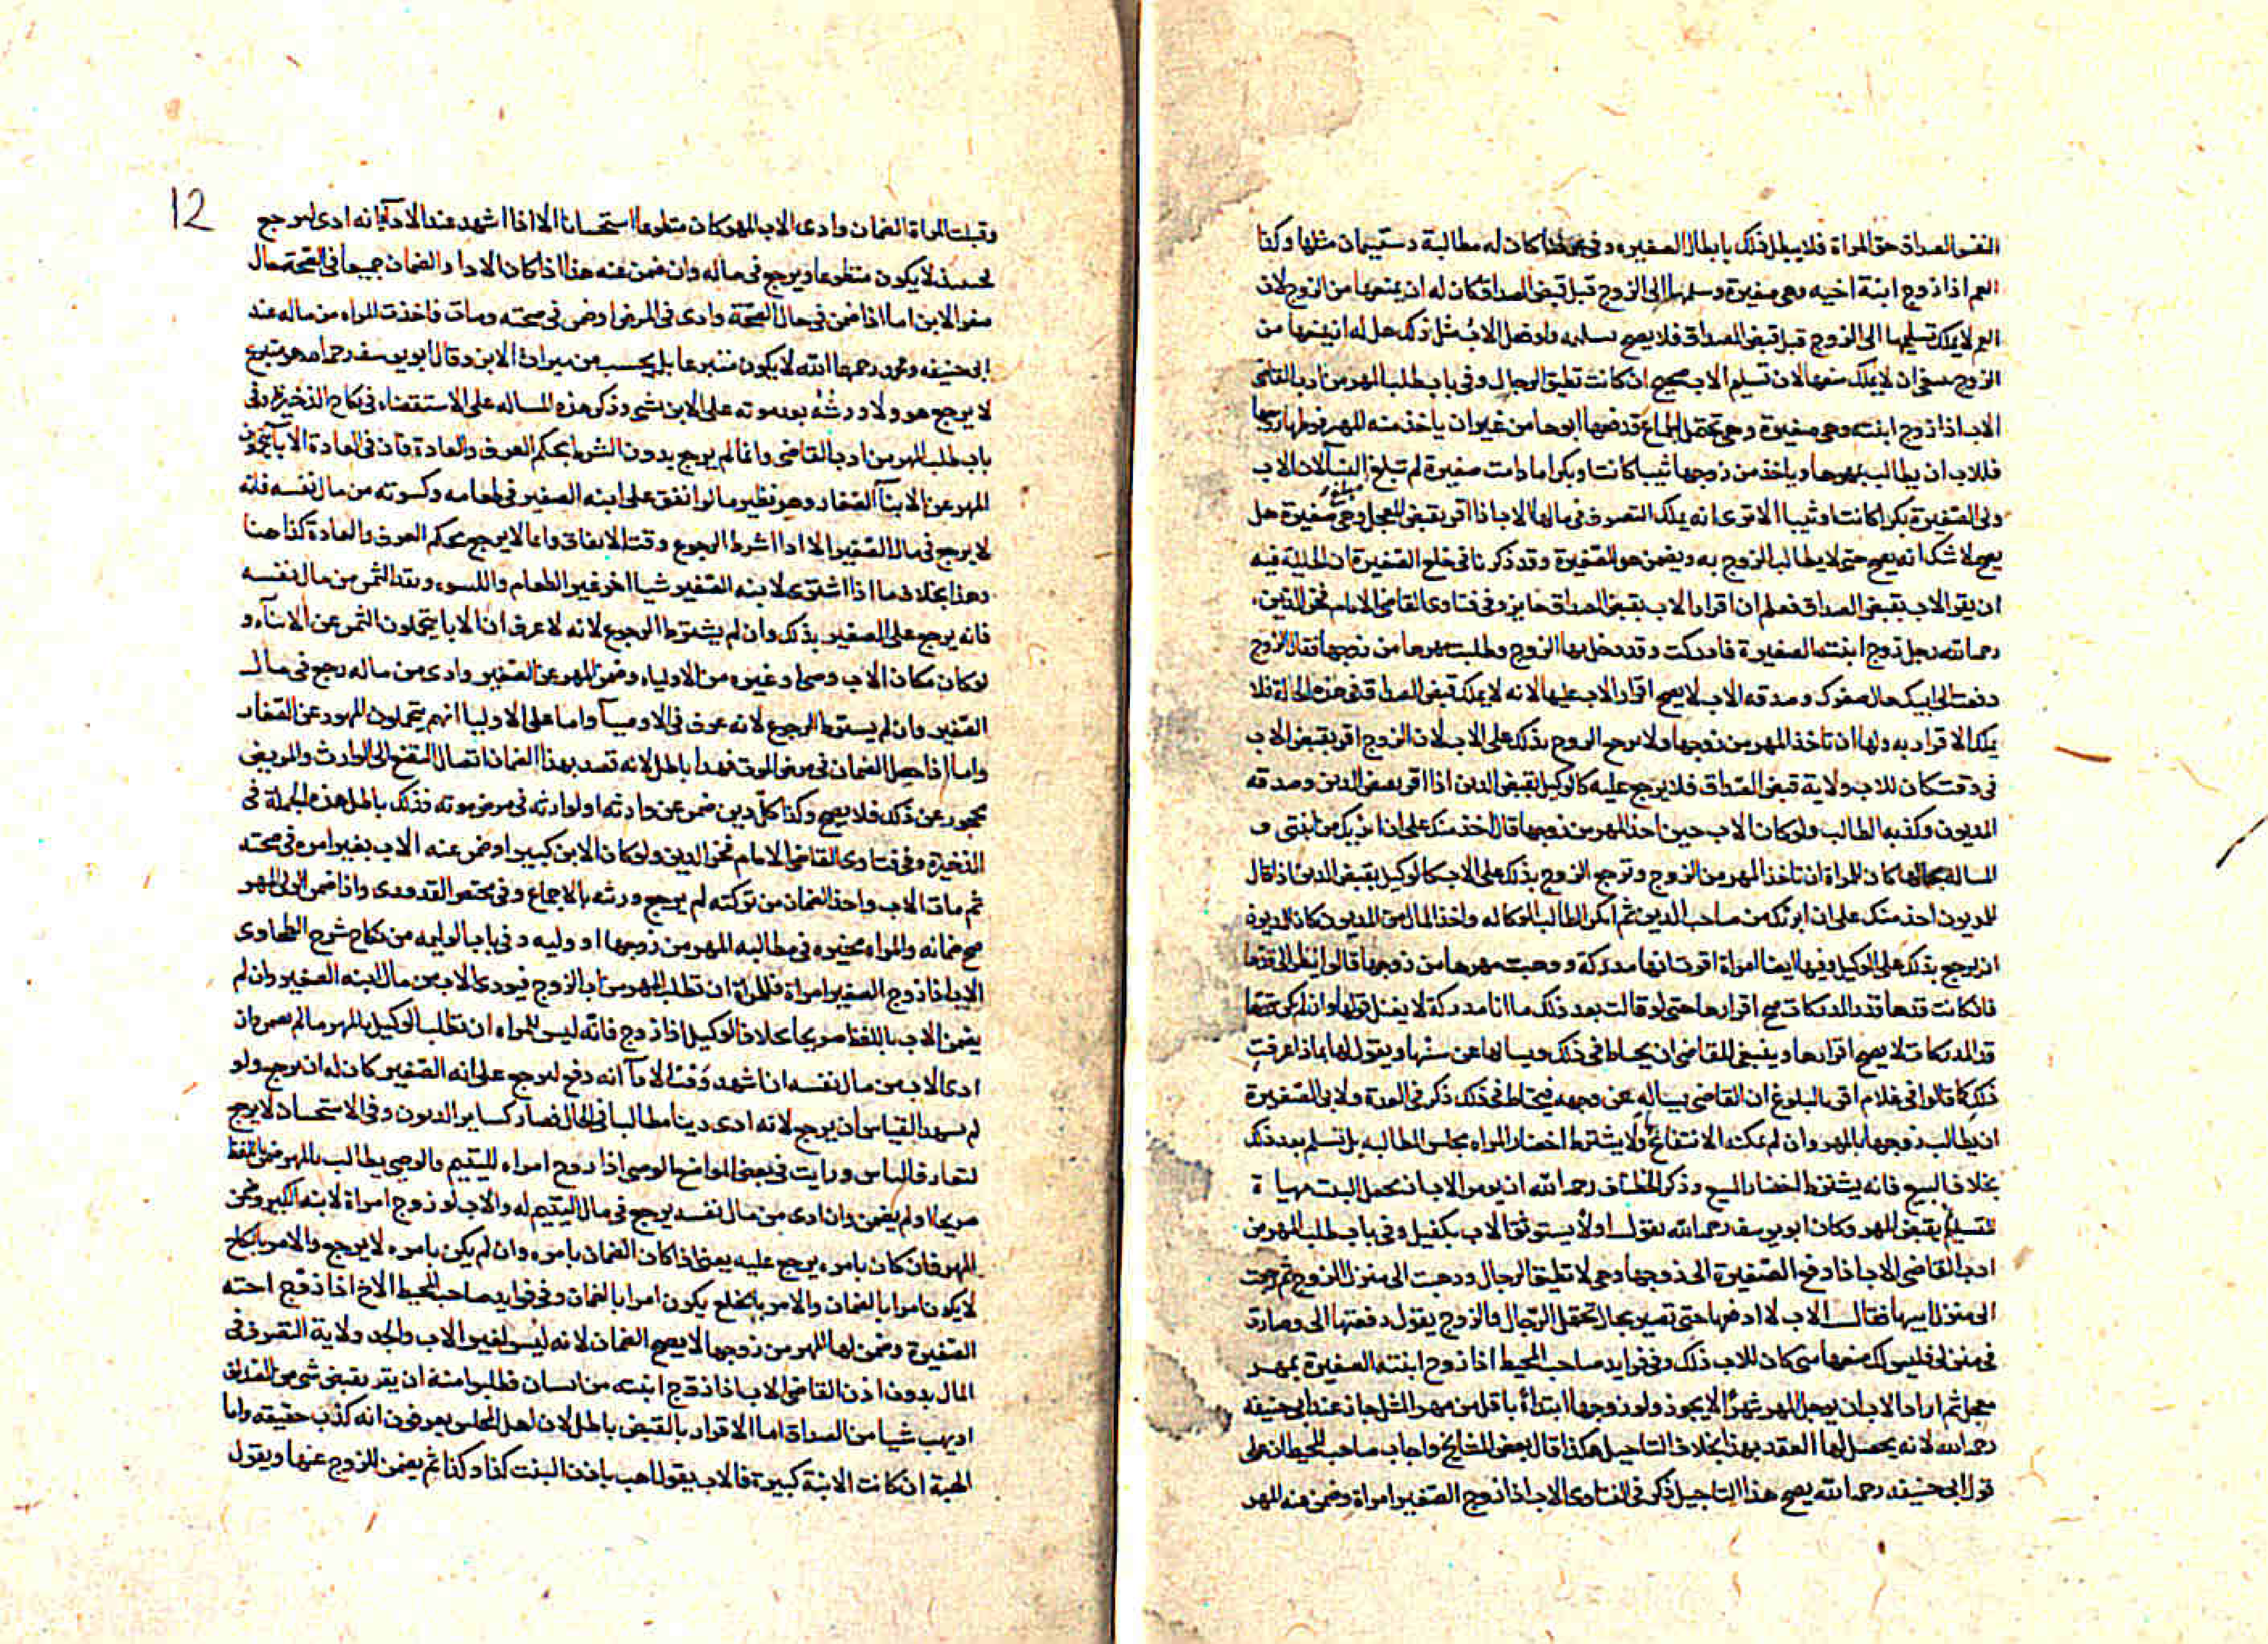 النفس الصداق حق المراة فلا يبطل ذلك بابطال الصغيره وفي كان له مطالبة مثلها وكذا
العم اذا زوج ابنة اخيه وهي صغيرة وسلمها الى الزوج قبل قبض الصداق كان له ان يمنعها من الزوج لان
العم لا يملك تسليمها الى الزوج قبل قبض الصداق فلا يصح تسليمه ولو فعل الاب مثل ذلك هل له ان يمنعها من
الزوج ينبغي ان لا يملك منعها لان تسليم الاب صحيح ان كانت تطيق الرجال وفي باب طلب المهر من ادب القاضي
الاب اذا زوج ابنته وهي صغيرة وهي تحتمل الجماع قد دفعها ابوها من غير ان ياخذ منه المهر
فللاب ان يطالب بمهرها وياخذ من زوجها ثيبا كانت او بكرا ما دامت صغيرة لم تبلغ لان الاب
ولي الصغيرة بكرا كانت او ثيبا الا ترى انه يملك التصرف في مالها الاب اذا اقر بقبض المعجل وهي صغيرة هل
يصح لا شك انه يصح حتى لا يطالب الزوج به ويضمن هو للصغيرة وقد ذكرنا في خلع الصغيرة ان الحيلة فيه
ان يقر الاب بقبض الصداق فعلم ان اقرار الاب بقبض الصداق جايز وفي فتاوى القاضي الامام فخر الدين
رحمه الله رجل زوج ابنته الصغيرة فادركت وقد دخل بها الزوج وطلبت مهرها من زوجها فقال الزوج
دفعت الى ابيك حال صغرك وصدقه الاب لا يصح اقرار الاب عليها لانه لا يملك قبض الصداق في هذه الحالة فلا
يملك الاقرار به ولها ان تاخذ المهر من زوجها ولا يرجع الزوج بذلك على الاب لان الزوج اقر بقبض الاب
في وقت كان للاب ولاية قبض الصداق فلا يرجع عليه كالوكيل بقبض الدين اذا اقر بقبض الدين وصدقه
المديون وكذبه الطالب ولو كان الاب حين اخذ المهر من زوجها قال اخذ منك على ان ابريك من ابنتي و
المسالة بحالها كان للمراة ان تاخذ المهر من الزوج وترجع الزوج بذلك على الاب كالوكيل بقبض الدين اذا قال
للمديون اخذ منك على ان ابرئك من صاحب الدين ثم انكر الطالب الوكاله واخذ المال من المديون كان للمديون
ان يرجع بذلك على الوكيل وفيها ايضا المراة اقرت انها مدركة ووهبت مهرها من زوجها قالوا ينظر الى قدها
فان كانت قدها قد المدركات صح اقرارها حتى لو قالت بعد ذلك ما انا مدركة لا يقبل قولها وان لم يكن قدها
قد المدركات لا يصح اقرارها وينبغي للقاضي ان يحتاط في ذلك ويسالها عن سنها ويقول لها بماذا عرفت
ذلك كما قالوا في غلام اقر بالبلوغ ان القاضي يساله عن وجهه فيحتاط في ذلك ذكر في العدة ولابي الصغيرة
ان يطالب زوجها بالمهر وان لم يمكنه الانتفاع بها ولا يشترط احضار المراه مجلس المطالبه بل تسلم بعد ذلك
بخلاف البيع فانه يشترط احضار المبيع وذكر الخصاف رحمه الله ان يومر الاب ان يجعل البنت مهياة
لتسليم بقبض المهر وكان ابو يوسف رحمه الله يقول اولا يستوثق الاب بكفيل وفي باب طلب المهر من
ادب القاضي الاب اذا دفع الصغيرة الى زوجها وهي لا تطيق الرجال وذهبت الى منزل الزوج ثم رجعت
الى منزل ابيها فقال الاب لا ادفعها حتى تصير بحال تحتمل الرجال والزوج يقول دفعتها الى وصارت
في منزلي فليس لك منعها مني كان للاب ذلك وفي فوايد صاحب المحيط اذا زوج ابنته الصغيرة بمهر
معجل ثم اراد الاب ان يوجل المهر شهرا لا يجوز ولو زوجها ابتداء باقل من مهر المثل جاز عند ابي حنيفه
رحمه الله لانه يحصل لها العقد بهذا بخلاف التاجيل هكذا قال بعض المشايخ واجاب صاحب المحيط ان على
قول ابي حنيفه رحمه الله يصح هذا التاجيل ذكر في الفتاوى الاب اذا زوج الصغير امراة وضمن عنه المهر
12
وقبلت المراة الضمان وادى الاب المهر كان متطوعا استحسانا الا اذا اشهد عند الادآ بانه ادى ليرجع
فحينئذ لا يكون متطوعا ويرجع في ماله وان ضمن عنه هذا اذا كان الاداء والضمان جميعا في الصحة حال
صغر الابن اما اذا ضمن في حال الصحة وادى في المرض او ضمن في صحته ومات فاخذت المراه من ماله عند
ابي حنيفه ومحمد رحمهما الله لا يكون متبرعا بل يحسب من ميراث الابن وقال ابو يوسف رحمه الله هو متبرع
لا يرجع هو ولا ورثته بعد موته على الابن بشي وذكر هذه المساله على الاستقصاء في نكاح الذخيرة وفي
باب طلب المهر من ادب القاضي وانما لم يرجع بدون الشرط بحكم العرف والعادة فان في العادة الابآ يتحملون
المهر عن الابنآ الصغار وهو نظير ما لو انفق على ابنه الصغير في طعامه وكسوته من مال نفسه فانه
لا يرجع في مال الصغير الا اذا اشرط الرجوع وقت الانفاق وانما لا يرجع بحكم العرف والعادة كذا هنا
وهذا بخلاف ما اذا اشترى لابنه الصغير شيا اخر غير الطعام والكسوه ونقد الثمن من مال نفسه
فانه يرجع على الصغير بذلك وان لم يشترط الرجوع لانه لا عرف ان الابا يتحملون الثمن عن الابنآء و
لو كان مكان الاب وصي او غيره من الاولياء وضمن المهر عن الصغير وادى من ماله رجع في مال
الصغير وان لم يشترط الرجوع لانه عرف في الاوصيآ واما على الاوليا انهم يتحملون المهور عن الصغار
واما اذا حصل الضمان في مرض الموت فهذا باطل لانه قصد بهذا الضمان اتصال النفع الى الوارث والمريض
محجور عن ذلك فلا يصح وكذا كل دين ضمن عن وارثه او لوارثه في مرض موته فذلك باطل هذه الجملة في
الذخيرة وفي فتاوى القاضي الامام فخر الدين ولو كان الابن كبيرا وضمن عنه الاب بغير امره في صحته
ثم مات الاب واخذ الضمان من تركته لم يرجع ورثته بالاجماع وفي مختصر القدوري واذا ضمن الولي المهر
صح ضمانه والمراه مخيره في مطالبه المهر من زوجها او وليه وفي باب الوليمه من نكاح شرح الطحاوي
الاب اذا زوج الصغير امراة فللمراة ان تطلب المهر من اب الزوج فيودى الاب من مال ابنه الصغير وان لم
يضمن الاب باللفظ صريحا بخلاف الوكيل اذا زوج فانه ليس للمراه ان تطلب الوكيل بالمهر ما لم يضمن وان
ادى الاب من مال نفسه ان اشهد وقت الادآ انه دفع ليرجع على ابنه الصغير كان له ان يرجع ولو
لم يشهد القياس ان يرجع لانه ادى دينا مطالبا في الحال فصار كساير الديون وفي الاستحسان لا يرجع
لتعارف الناس ورايت في بعض المواضع الوصي اذا زوج امراه لليتيم والوصي يطالب بالمهر ضمن باللفظ
صريحا او لم يضمن وان ادى من مال نفسه يرجع في مال اليتيم له والاب لو زوج امراة لابنه الكبير وضمن
المهر فان كان بامره يرجع عليه يعني اذا كان الضمان بامره وان لم يكن بامره لا يرجع والامر بالنكاح
لا يكون امرا بالضمان والامر بالخلع يكون امرا بالضمان وفي فوايد صاحب المحيط الاخ اذا زوج اخته
الصغيرة وضمن لها المهر من زوجها لا يصح الضمان لانه ليس لغير الاب والجد ولاية التصرف في
المال بدون اذن القاضي الاب اذا زوج ابنته من انسان فطلبوا منه ان يقر بقبض شي من الصداق
او يهب شيا من الصداق اما الاقرار بالقبض باطل لان اهل المجلس يعرفون انه كذب حقيقه واما
الهبة ان كانت الابنة كبيرة فالاب يقول اهب باذن البنت كذا وكذا ثم يضمن للزوج عنها ويقول